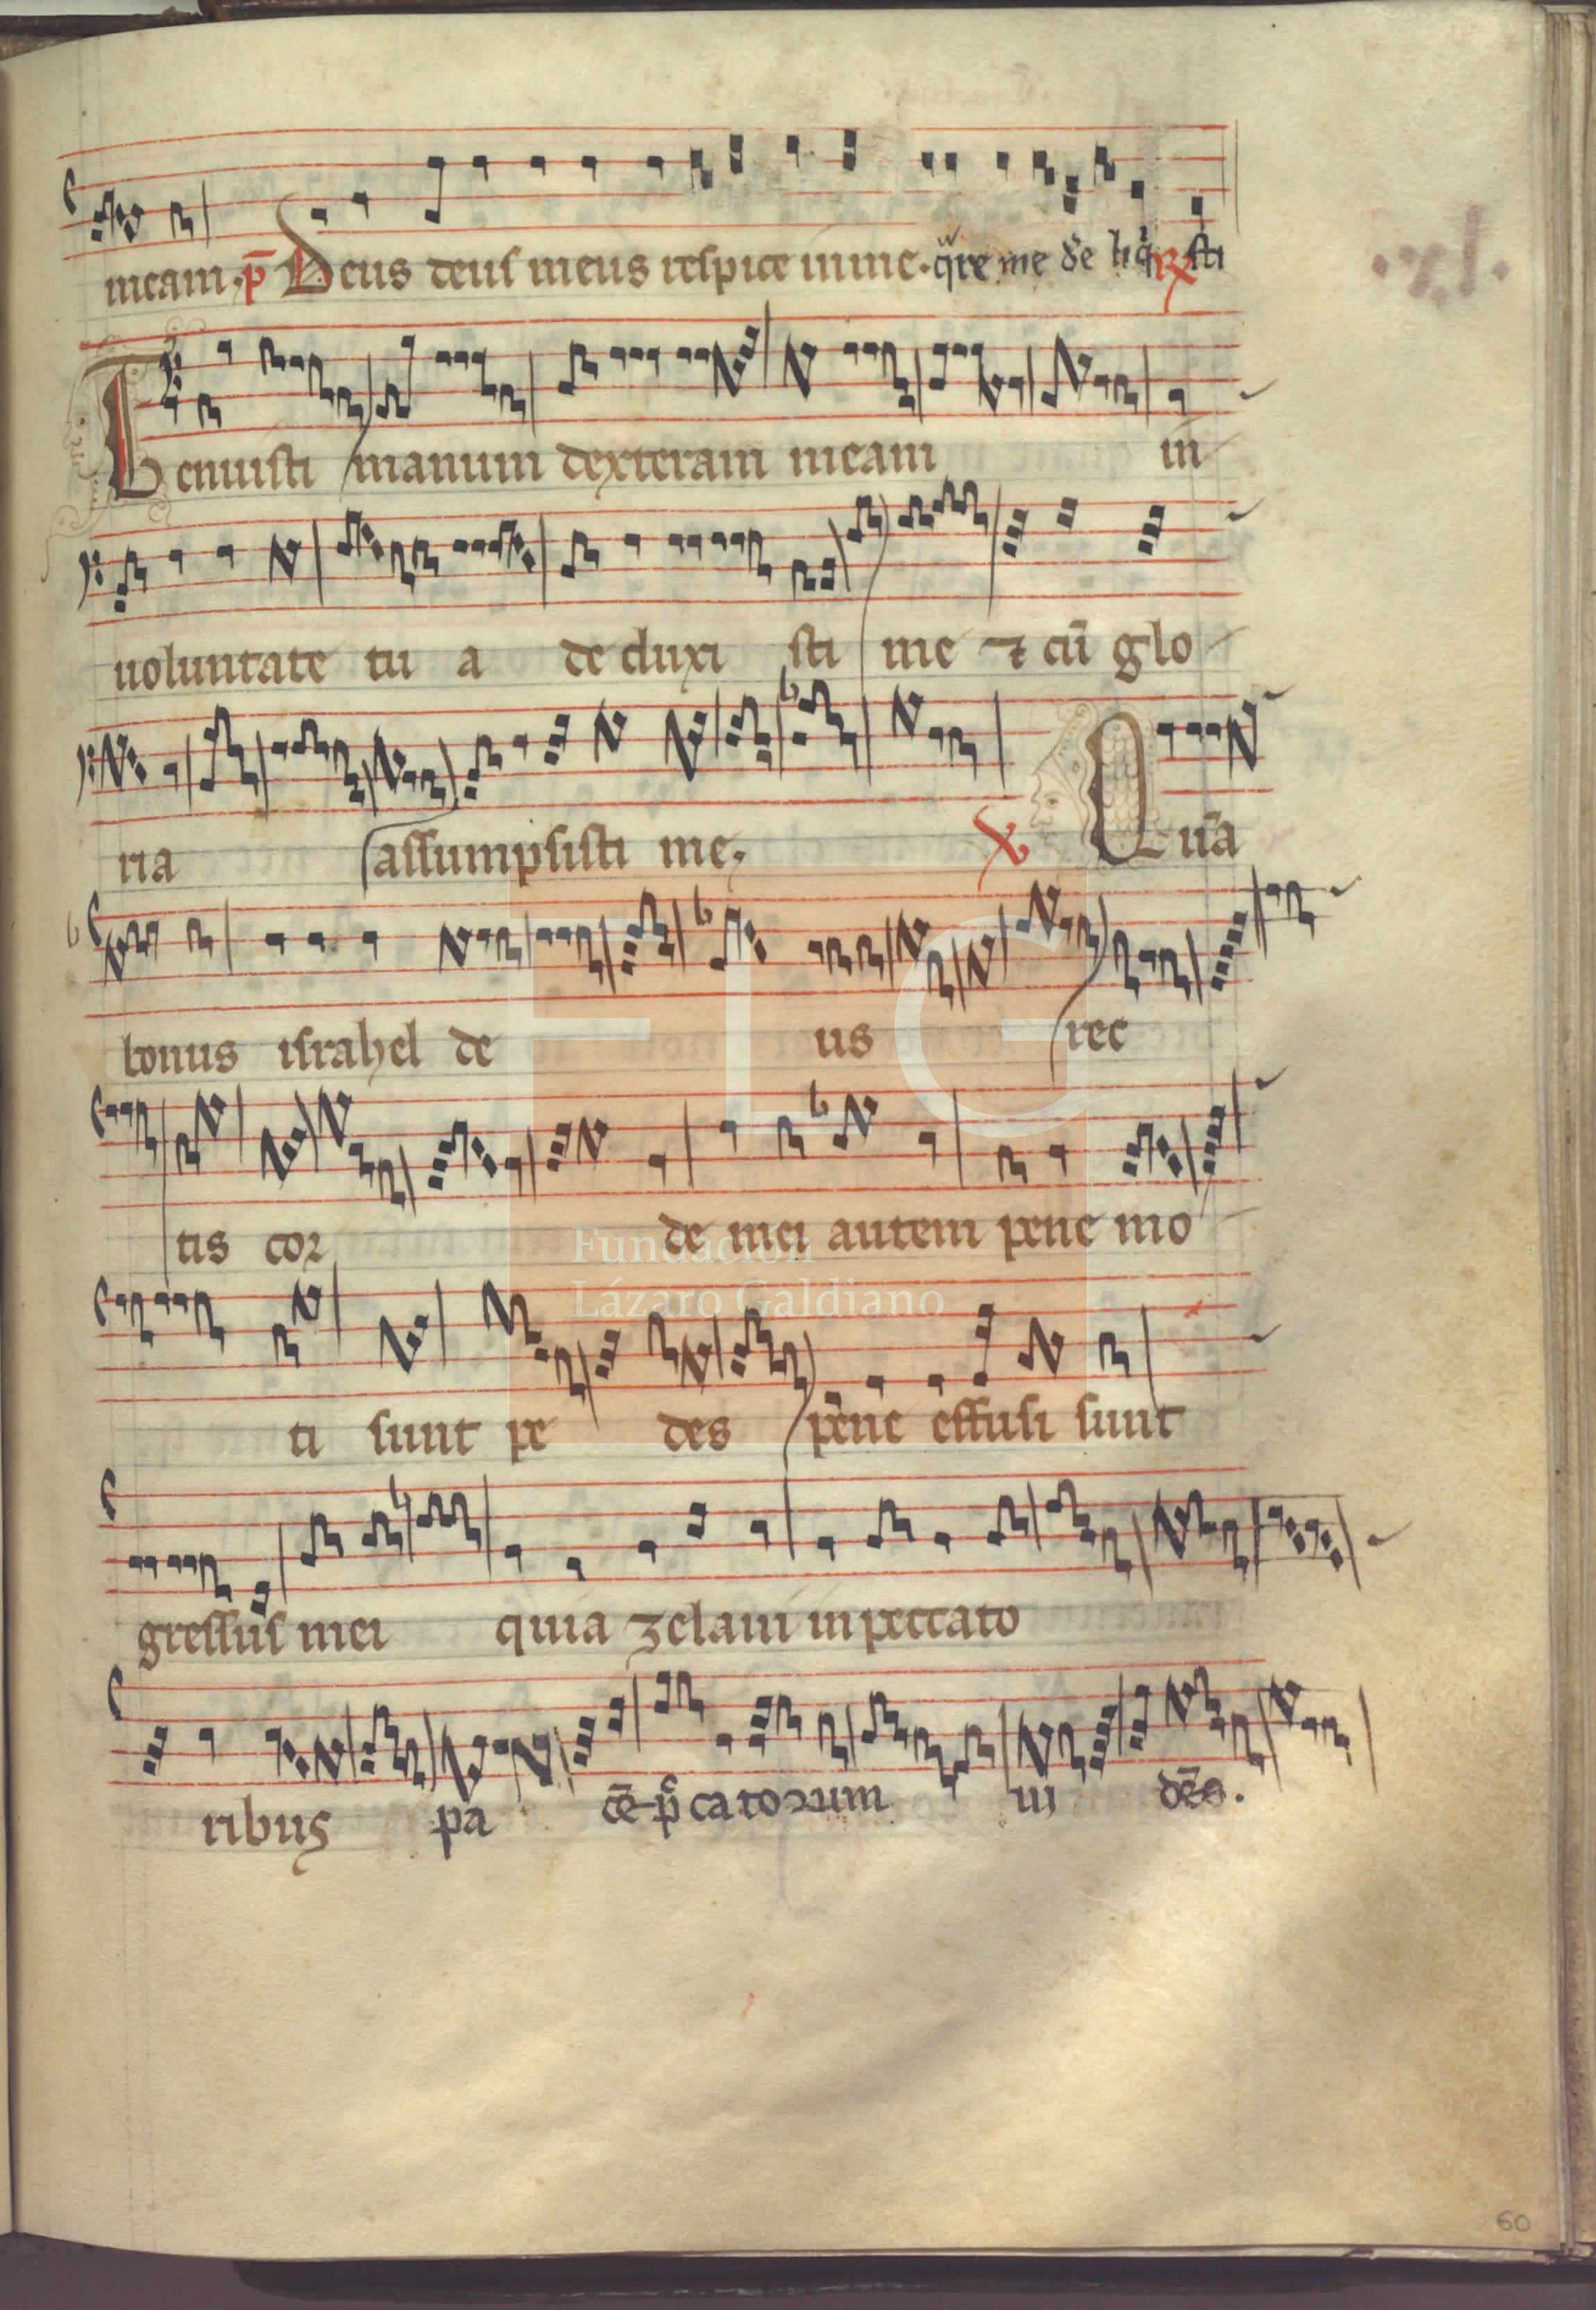 meam. p̄ Deus deus meus respice in me. qͣre me de liq̇ sti
.xl.
Tenuisti manum dexteram meam in
uoluntate tu a de duxi sti me ⁊ cū glo
ria assumpsisti me. Quā
bonus israhel de us rec
tis cor de mei autem pene mo
Fundación
Lázaro Galdiano
ti sunt pe des pene effusi sunt
gressus mei quia zelaui in peccato
ribus pa cē p̄catorum ui dēs.
FLG
60